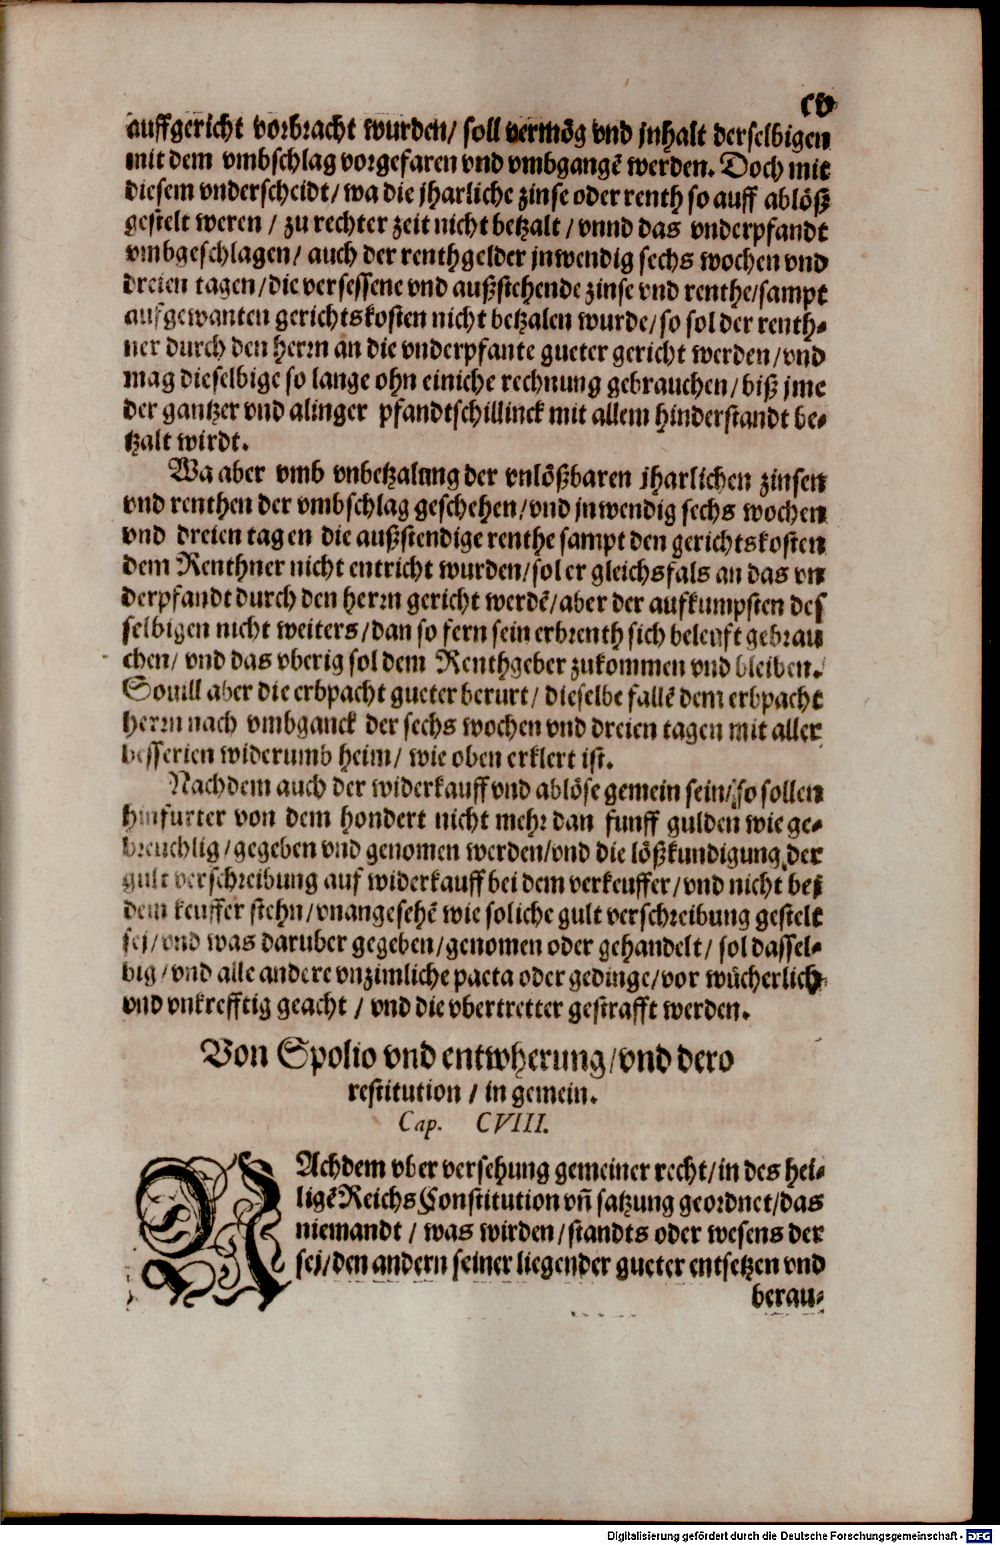 cv
auffgericht vorbracht wurden/ soll vermög vnd jnhalt derselbigen
mit dem vmbschlag vorgefaren vnd vmbgangē werden. Doch mit
diesem vnderscheidt/ wa die jharliche zinse oder renth so auff ablöß
gestelt weren / zu rechter zeit nicht betzalt / vnnd das vnderpfandt
vmbgeschlagen/ auch der renthgelder jnwendig sechs wochen vnd
dreien tagen/die versessene vnd außstehende zinse vnd renthe/sampt
aufgewanten gerichtskosten nicht betzalen wurde/so sol der renth-
ner durch den herrn an die vnderpfante gueter gericht werden/vnd
mag dieselbige so lange ohn einiche rechnung gebrauchen/biß jme
der gantzer vnd alinger pfandtschillinck mit allem hinderstandt be-
tzalt wirdt.
Wa aber vmb vnbetzalung der vnlößbaren jharlichen zinsen
vnd renthen der vmbschlag geschehen/vnd jnwendig sechs wochen
vnd dreien tagen die außstendige renthe sampt den gerichtskosten
dem Renthner nicht entricht wurden/sol er gleichsfals an das vn
derpfandt durch den herrn gericht werdē/aber der aufkumpsten des
selbigen nicht weiters/dan so fern sein erbrenth sich beleuft gebrau
chen/ vnd das vberig sol dem Renthgeber zukommen vnd bleiben.
Souill aber die erbpacht gueter berurt/ dieselbe fallē dem erbpacht
herrn nach vmbganck der sechs wochen vnd dreien tagen mit aller
besserien widerumb heim/ wie oben erklert ist.
Nachdem auch der widerkauff vnd ablöse gemein sein/so sollen
hinfurter von dem hondert nicht mehr dan funff gulden wie ge-
breuchlig/gegeben vnd genomen werden/vnd die lößkundigung der
gult verschreibung auf widerkauff bei dem verkeuffer/vnd nicht bei
dem keuffer stehn/vnangesehē wie soliche gult verschreibung gestelt
sei/vnd was daruber gegeben/genomen oder gehandelt/ sol dassel-
big/vnd alle andere vnzimliche pacta oder gedinge/vor wůcherlich
vnd vnkrefftig geacht / vnd die vbertretter gestrafft werden.
Von Spolio vnd entwherung/vnd dero
restitution / in gemein.
Cap. CVIII.
NAchdem vber versehung gemeiner recht/in des hei-
ligē Reichs Constitution vñ satzung geordnet/das
niemandt / was wirden/standts oder wesens der
sei/den andern seiner liegender gueter entsetzen vnd
berau-
Digitalisierung gefördert durch die Deutsche Forschungsgemeinschaft - DFG